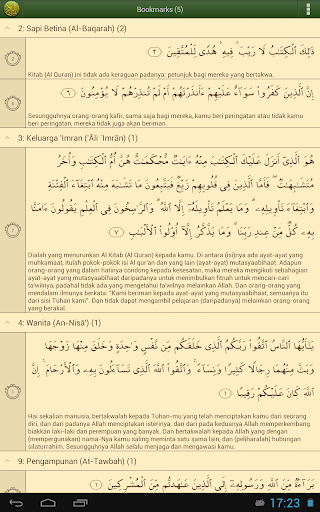 Bookmarks (5)
2: Sapi Betina (Al-Baqarah) (2)
ذَٰلِكَ ٱلْكِتَـٰبُ لَا رَيْبَ ۛ فِيهِ ۛ هُدًى لِّلْمُتَّقِينَ ٢
Kitab (Al Quran) ini tidak ada keraguan padanya; petunjuk bagi mereka yang bertakwa,
إِنَّ ٱلَّذِينَ كَفَرُوا۟ سَوَآءٌ عَلَيْهِمْ ءَأَنذَرْتَهُمْ أَمْ لَمْ تُنذِرْهُمْ لَا يُؤْمِنُونَ ٦
Sesungguhnya orang-orang kafir, sama saja bagi mereka, kamu beri peringatan atau tidak kamu
beri peringatan, mereka tidak juga akan beriman.
3: Keluarga 'Imran (Āli `Imrān) (1)
هُوَ ٱلَّذِىٓ أَنزَلَ عَلَيْكَ ٱلْكِتَـٰبَ مِنْهُ ءَايَـٰتٌ مُّحْكَمَـٰتٌ هُنَّ أُمُّ ٱلْكِتَـٰبِ وَأُخَرُ
مُتَشَـٰبِهَـٰتٌ ۖ فَأَمَّا ٱلَّذِينَ فِى قُلُوبِهِمْ زَيْغٌ فَيَتَّبِعُونَ مَا تَشَـٰبَهَ مِنْهُ ٱبْتِغَآءَ ٱلْفِتْنَةِ
وَٱبْتِغَآءَ تَأْوِيلِهِۦ ۗ وَمَا يَعْلَمُ تَأْوِيلَهُۥٓ إِلَّا ٱللَّهُ ۗ وَٱلرَّٰسِخُونَ فِى ٱلْعِلْمِ يَقُولُونَ ءَامَنَّا
بِهِۦ كُلٌّ مِّنْ عِندِ رَبِّنَا ۗ وَمَا يَذَّكَّرُ إِلَّآ أُو۟لُوا۟ ٱلْأَلْبَـٰبِ ٧
Dialah yang menurunkan Al Kitab (Al Quran) kepada kamu. Di antara (isi)nya ada ayat-ayat yang
muhkamaat, itulah pokok-pokok isi Al qur'an dan yang lain (ayat-ayat) mutasyaabihaat. Adapun
orang-orang yang dalam hatinya condong kepada kesesatan, maka mereka mengikuti sebahagian
ayat-ayat yang mutasyaabihaat daripadanya untuk menimbulkan fitnah untuk mencari-cari
ta'wilnya, padahal tidak ada yang mengetahui ta'wilnya melainkan Allah. Dan orang-orang yang
mendalam ilmunya berkata: "Kami beriman kepada ayat-ayat yang mutasyaabihaat, semuanya itu
dari sisi Tuhan kami". Dan tidak dapat mengambil pelajaran (daripadanya) melainkan orang-orang
yang berakal.
4: Wanita (An-Nisā') (1)
يَـٰٓأَيُّهَا ٱلنَّاسُ ٱتَّقُوا۟ رَبَّكُمُ ٱلَّذِى خَلَقَكُم مِّن نَّفْسٍ وَٰحِدَةٍ وَخَلَقَ مِنْهَا زَوْجَهَا
وَبَثَّ مِنْهُمَا رِجَالًا كَثِيرًا وَنِسَآءً ۚ وَٱتَّقُوا۟ ٱللَّهَ ٱلَّذِى تَسَآءَلُونَ بِهِۦ وَٱلْأَرْحَامَ ۚ إِنَّ
ٱللَّهَ كَانَ عَلَيْكُمْ رَقِيبًا ١
Hai sekalian manusia, bertakwalah kepada Tuhan-mu yang telah menciptakan kamu dari seorang
diri, dan dari padanya Allah menciptakan isterinya; dan dari pada keduanya Allah memperkembang
biakkan laki-laki dan perempuan yang banyak. Dan bertakwalah kepada Allah yang dengan
(mempergunakan) nama-Nya kamu saling meminta satu sama lain, dan (peliharalah) hubungan
silaturrahim. Sesungguhnya Allah selalu menjaga dan mengawasi kamu.
9: Pengampunan (At-Tawbah) (1)
بَرَآءَةٌ مِّنَ ٱللَّهِ وَرَسُولِهِۦٓ إِلَى ٱلَّذِينَ عَـٰهَدتُّم مِّنَ ٱلْمُشْرِكِينَ ١
17:23